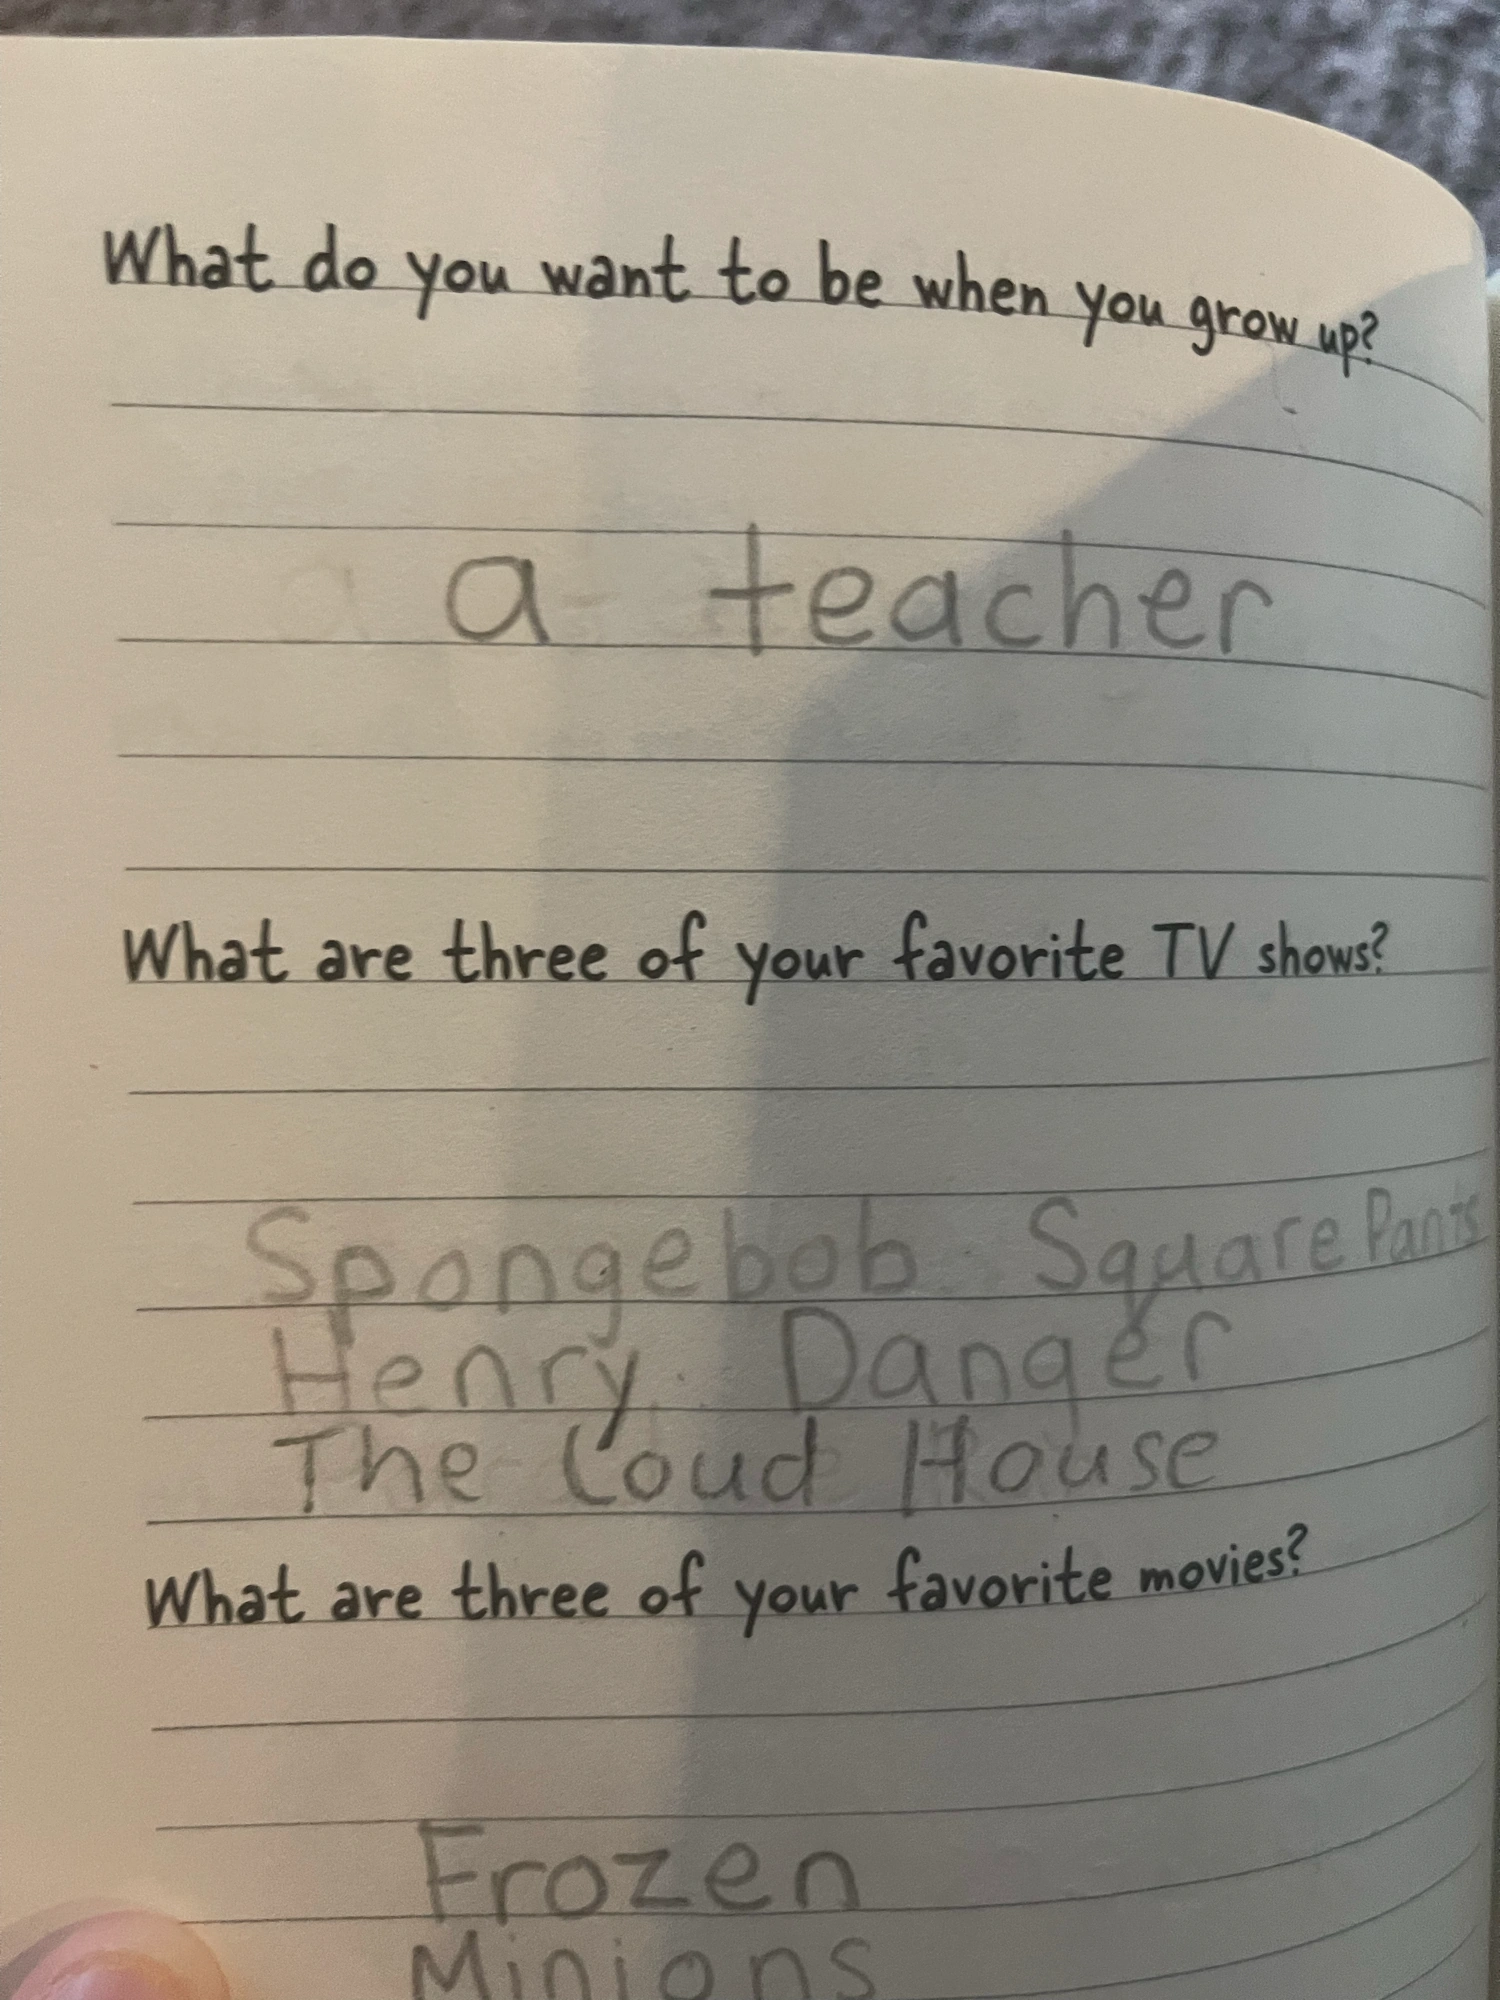 What do you want to be when you grow up?
a teacher
What are three of your favorite TV shows?
Spongebob SquarePants
Henry Danger
The Loud House
What are three of your favorite movies?
Frozen
Minions